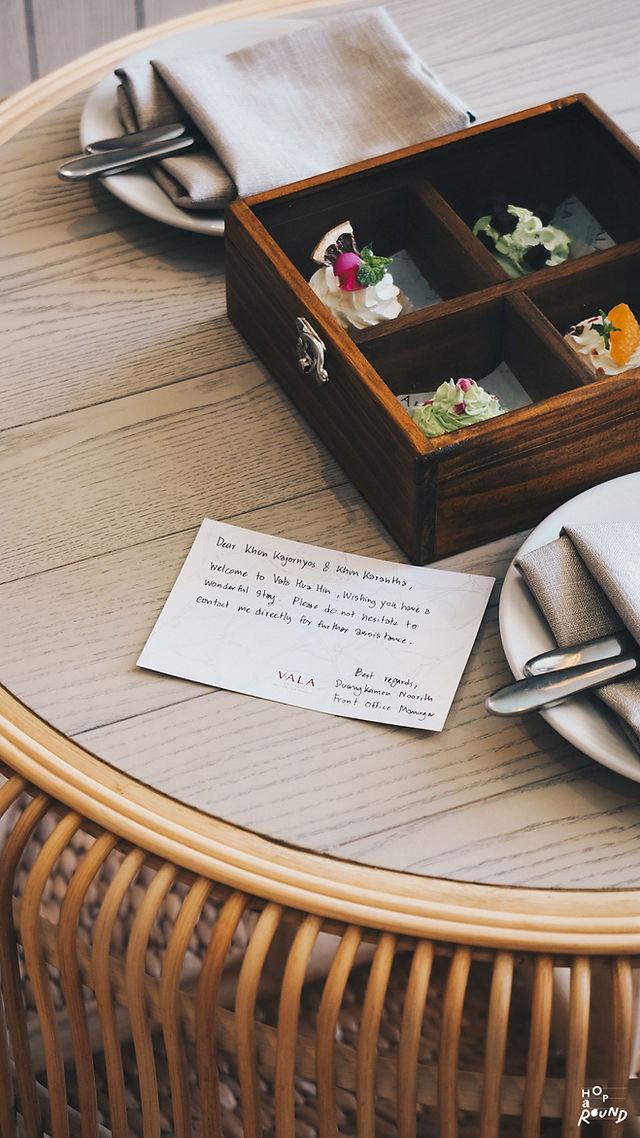 Dear Khun Kajornyos & Khun Karantha,
Welcome to Vala Hua Hin, Wishing you have a
wonderful stay. Please do not hesitate to
contact me directly for further assistance.
Best regards,
Duangkamen Noorith
Front Office Manager
VALA
HOP
aROUND